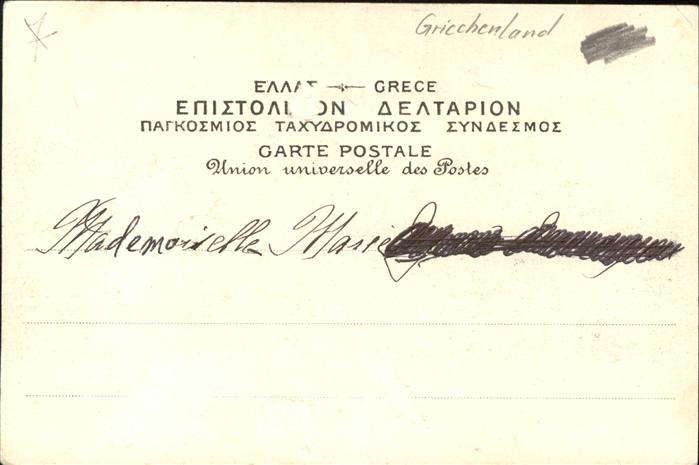 Griechenland
ΕΛΛΑΣ GRECE
ΔΕΛΤΑΡΙΟΝ
ΠΑΓΚΟΣΜΙΟΣ ΤΑΧΥΔΡΟΜΙΚΟΣ ΣΥΝΔΕΣΜΟΣ
CARTE POSTALE
Union universelle des Postes
Mademoiselle Marie